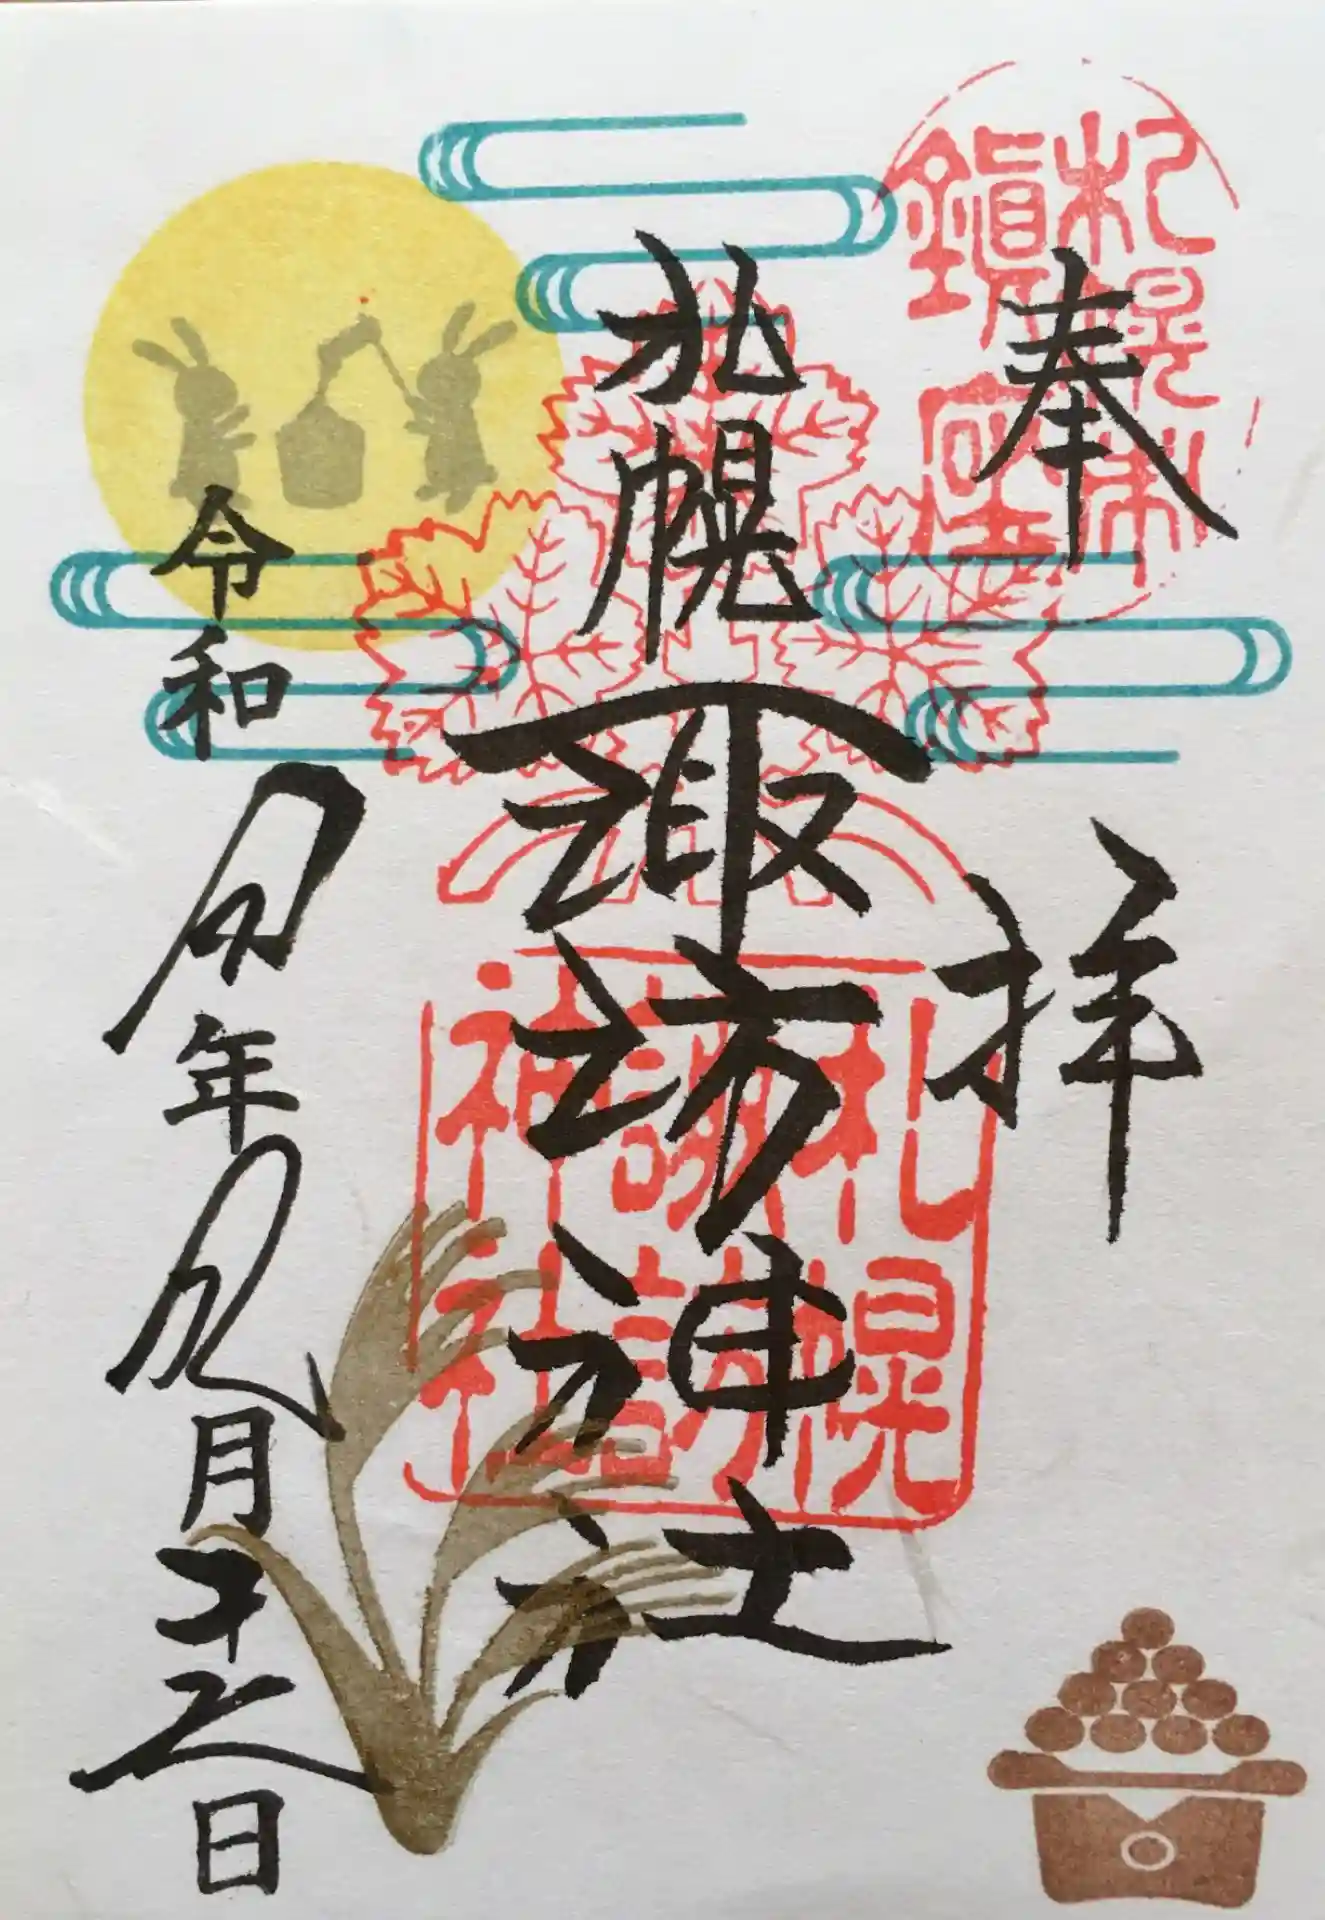 奉拝
札幌諏訪神社
令和 年 月 日
札幌村
鎮座
札幌
諏訪
神社